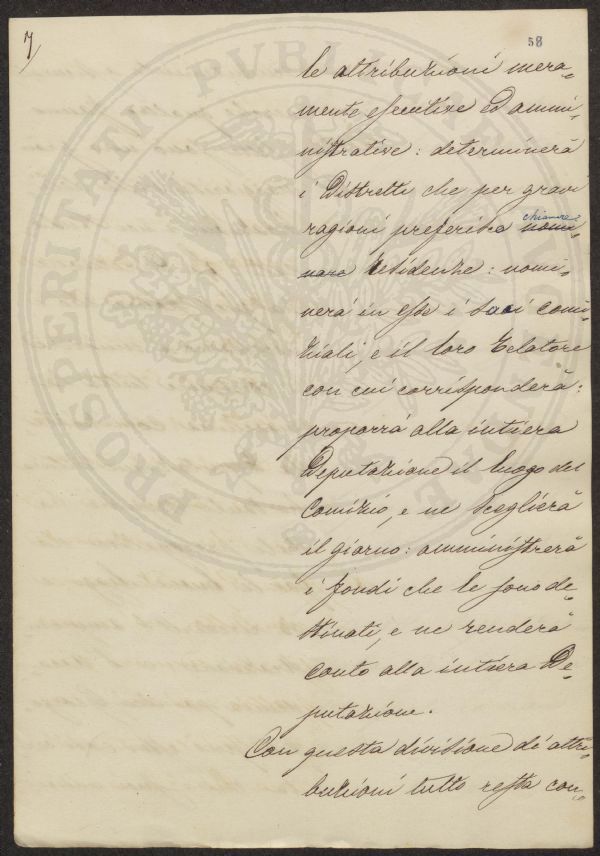 7
58
le attribuzioni mera=
mente esecutive ed ammi=
nistrative: determinerà
i Distretti che per gravi
ragioni preferisca nomi=
chiamare
nare Residenze: nomi=
nerà in esse i suoi comi=
ziali, e il loro Relatore
con cui corrisponderà:
proporrà alla intiera
Deputazione il luogo del
Comizio, e ne sceglierà
il giorno: amministrerà
i fondi che le sono de=
stinati, e ne renderà
conto alla intiera De=
putazione.
Con questa divisione di attri=
buzioni tutto resta con=
PROSPERITATI PVBLICAE